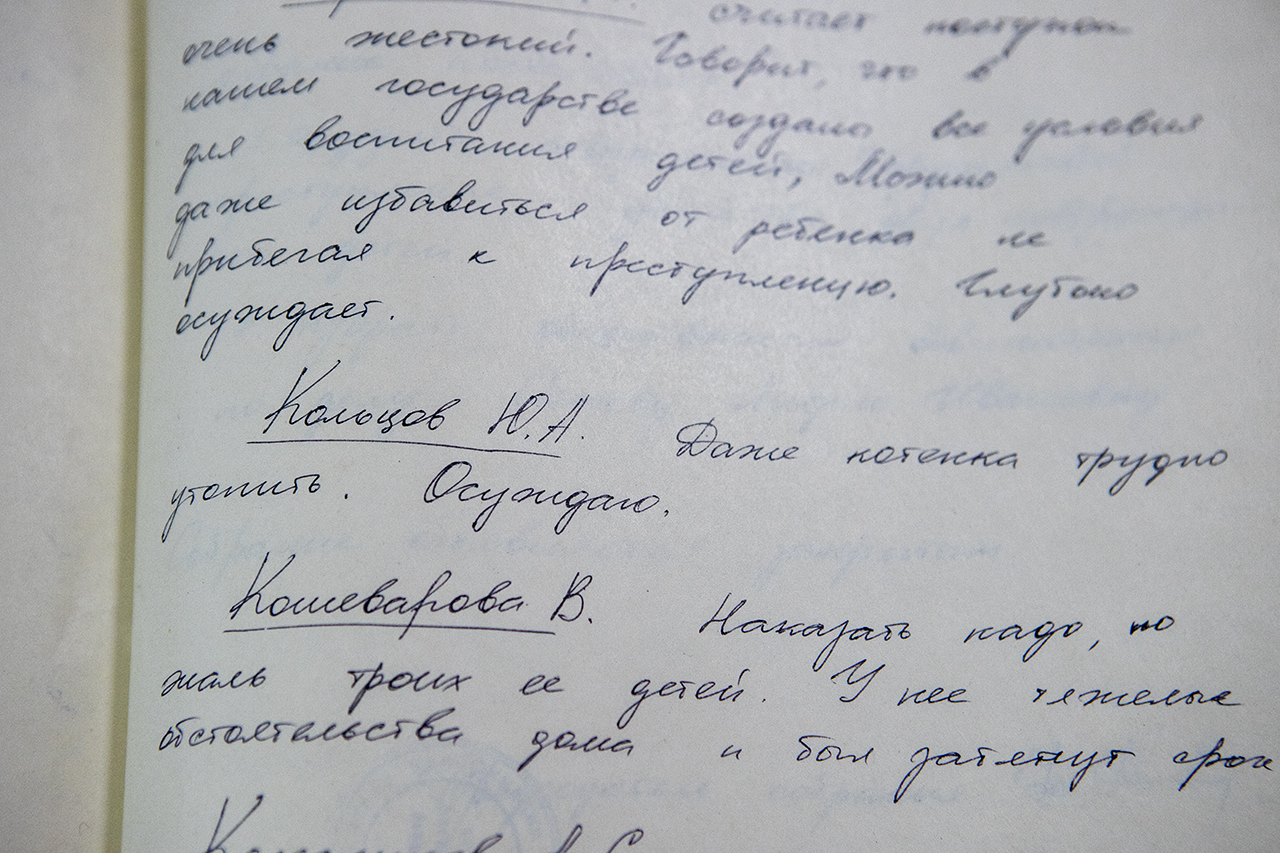 считает поступок
очень жестокий. Говорит, что в
нашем государстве создано все условия
для воспитания детей, Можно
даже избавиться от ребенка не
прибегая к преступлению. Глубоко
осуждает.
Кольцов Ю.А. Даже котенка трудно
утопить. Осуждаю.
Кошеварова В. Наказать надо, но
жаль троих ее детей. У нее тяжелые
обстоятельства дома и был затянут срок